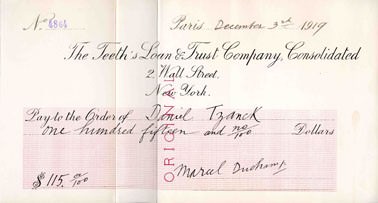 No 4864 Paris December 3rd 1919
The Teeth's Loan & Trust Company, Consolidated
2 Wall Street.
New York.
Pay to the Order of Daniel Tzanck
one hundred fifteen and no/100 Dollars
ORIGINAL
$115. no/100 Marcel Duchamp